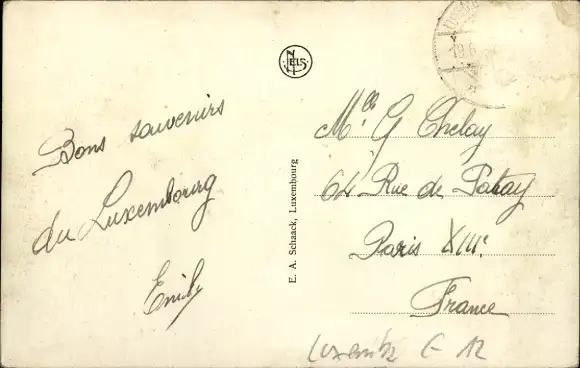 Bons souvenirs
du Luxembourg
Emily
NELS
E. A. Schaack, Luxembourg
Mlle G Chelay
64 Rue de Patay
Paris XIIIe
France
E 12